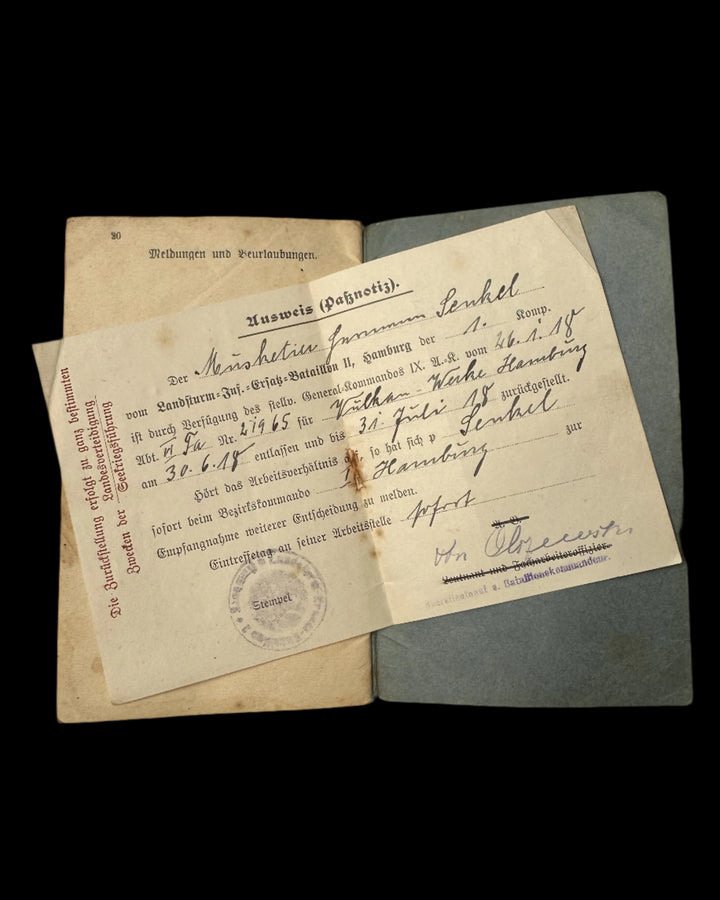 20
Meldungen und Beurlaubungen.
Ausweis (Paßnotiz).
Der Musketier Hermann Senkel
vom Landsturm-Inf.-Ersatz-Bataillon II, Hamburg der 1. Komp.
ist durch Verfügung des stellv. General-Kommandos IX. A.-K. vom 26.1.18
Abt. VI Fa Nr. 21965 für Vulkan-Werke Hamburg
am 30.6.18 entlassen und bis 31. Juli 18 zurückgestellt.
Hört das Arbeitsverhältnis auf, so hat sich p Senkel
sofort beim Bezirkskommando Hamburg zur
Empfangnahme weiterer Entscheidung zu melden.
Eintreffetag an seiner Arbeitsstelle sofort
Stempel
von
Leutnant und Facharbeiteroffizier.
u. Bataillonskommandeur.
Die Zurückstellung erfolgt zu ganz bestimmten
Zwecken der Landesverteidigung
Seekriegsführung